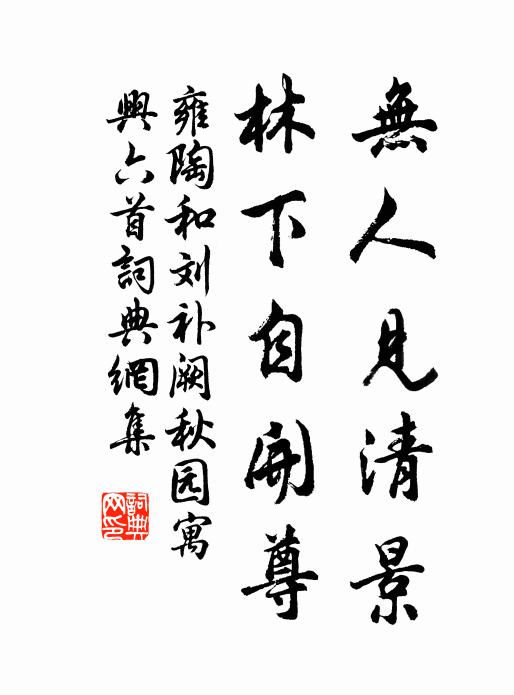 無人見清景
林下自開尊
雍陶和刘补阙秋园寓
興六首詞典網集
詞典
网印